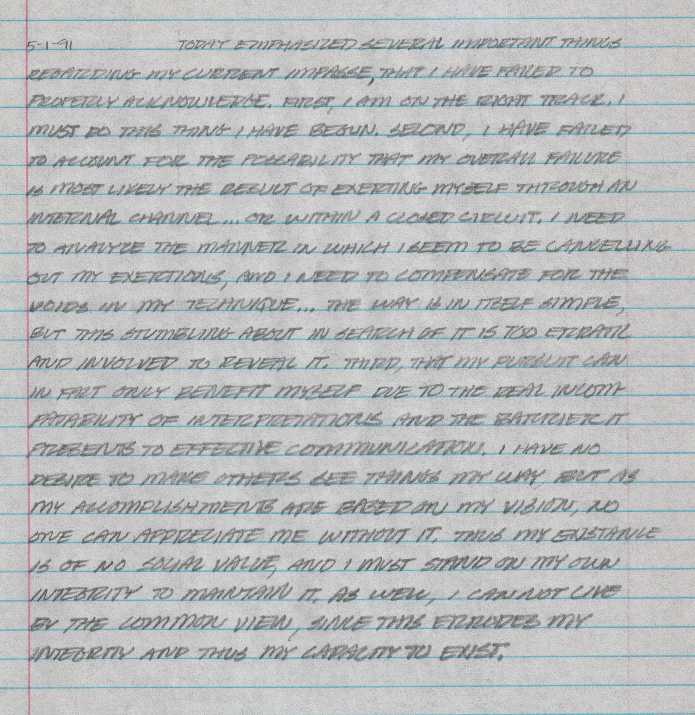 5-1-91 TODAY EMPHASIZED SEVERAL IMPORTANT THINGS
REGARDING MY CURRENT IMPASSE, THAT I HAVE FAILED TO
PROPERLY ACKNOWLEDGE. FIRST, I AM ON THE RIGHT TRACK. I
MUST DO THIS THING I HAVE BEGUN. SECOND, I HAVE FAILED
TO ACCOUNT FOR THE POSSABILITY THAT MY OVERALL FAILURE
IS MOST LIKELY THE RESULT OF EXERTING MYSELF THROUGH AN
INTERNAL CHANNEL... OR WITHIN A CLOSED CIRCUIT. I NEED
TO ANALYZE THE MANNER IN WHICH I SEEM TO BE CANCELLING
OUT MY EXERTIONS, AND I NEED TO COMPENSATE FOR THE
VOIDS IN MY TECHNIQUE... THE WAY IS IN ITSELF SIMPLE,
BUT THIS STUMBLING ABOUT IN SEARCH OF IT IS TOO ERRATIC
AND INVOLVED TO REVEAL IT. THIRD, THAT MY PURSUIT CAN
IN FACT ONLY BENEFIT MYSELF DUE TO THE REAL INCOM-
PATABILITY OF INTERPRETATIONS AND THE BARRIER IT
PRESENTS TO EFFECTIVE COMMUNICATION. I HAVE NO
DESIRE TO MAKE OTHERS SEE THINGS MY WAY BUT AS
MY ACCOMPLISHMENTS ARE BASED ON MY VISION, NO
ONE CAN APPRECIATE ME WITHOUT IT. THUS MY EXISTANCE
IS OF NO SOCIAL VALUE, AND I MUST STAND ON MY OWN
INTEGRITY TO MAINTAIN IT. AS WELL, I CAN NOT LIVE
BY THE COMMON VIEW, SINCE THIS ERRODES MY
INTEGRITY AND THUS MY CAPACITY TO EXIST.